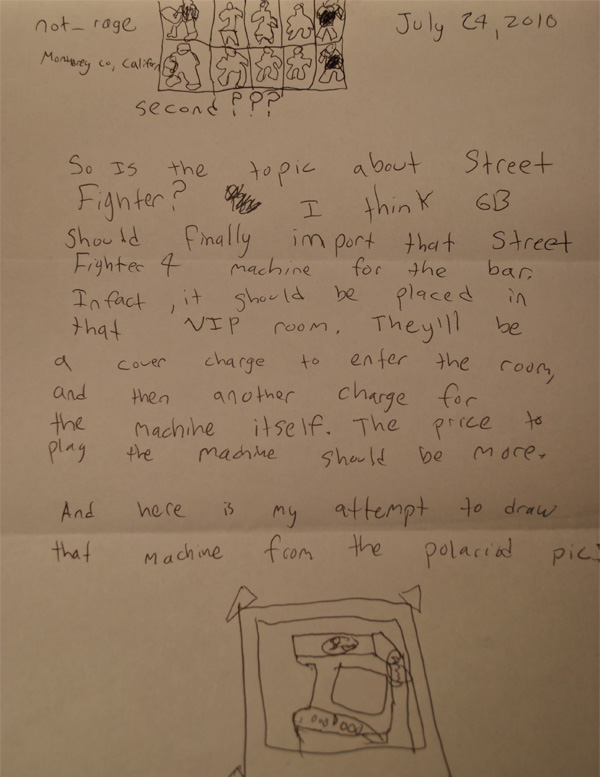 not_rage
July 24, 2010
Monterey co, Californ
second ???
So Is the topic about Street
Fighter? I think GB
should finally import that Street
Fighter 4 machine for the bar.
Infact, it should be placed in
that VIP room. They'll be
a cover charge to enter the room,
and then another charge for
the machine itself. The price to
play the machine should be more.
And here is my attempt to draw
that machine from the polariod pic!